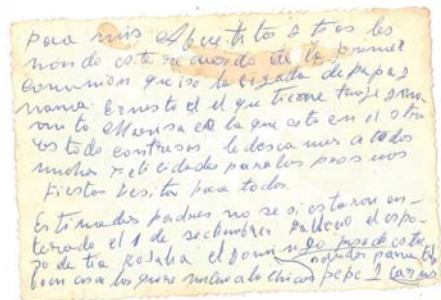 para mis Abuelitos e tios les
mando este recuerdo de la primer
comunion que iso la cuzada de papa y
mama. Ernesto el el que tiene traje
Marisa es la que esta en el otro
es todo contrasos le deseamos a todos
muchas felicidades para las
fiestas besitos para todos.
Estimados padres no se si estaran en-
terado el 1 de setiembre fallecio el espo-
so de tia Rosalia el Domingo pasado estu
bien cosa los quiere mucho a los chicos pepe y Carmen